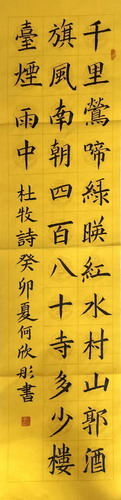 千里鶯啼綠暎紅水村山郭酒
旗風南朝四百八十寺多少樓
臺煙雨中杜牧詩癸卯夏何欣彤書